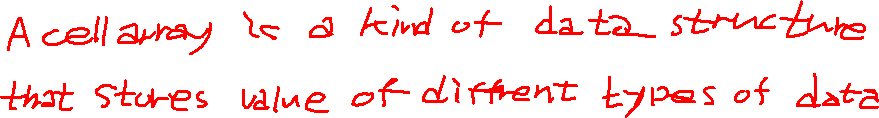 A cell array is a kind of data structure
that stores value of diffrent types of data